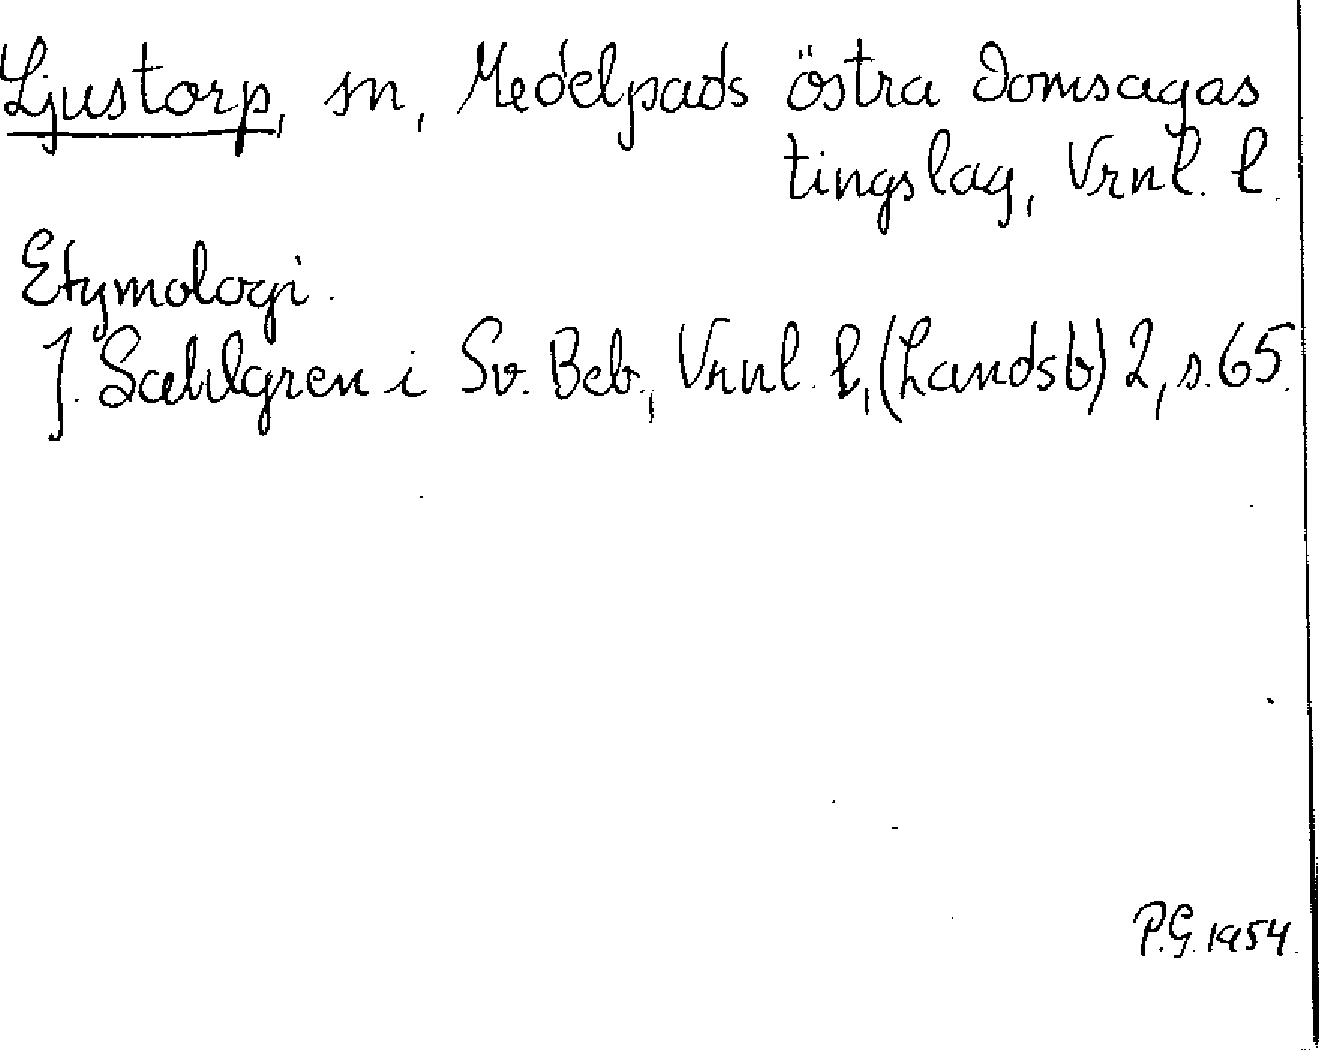 Ljustorp, sn, Medelpads östra domsagas
tingslag, Vrnl. l.
Etymologi.
J. Sahlgren i Sv. Beb., Vrnl. l, (Landsb) 2, s. 65.
P.G. 1954.